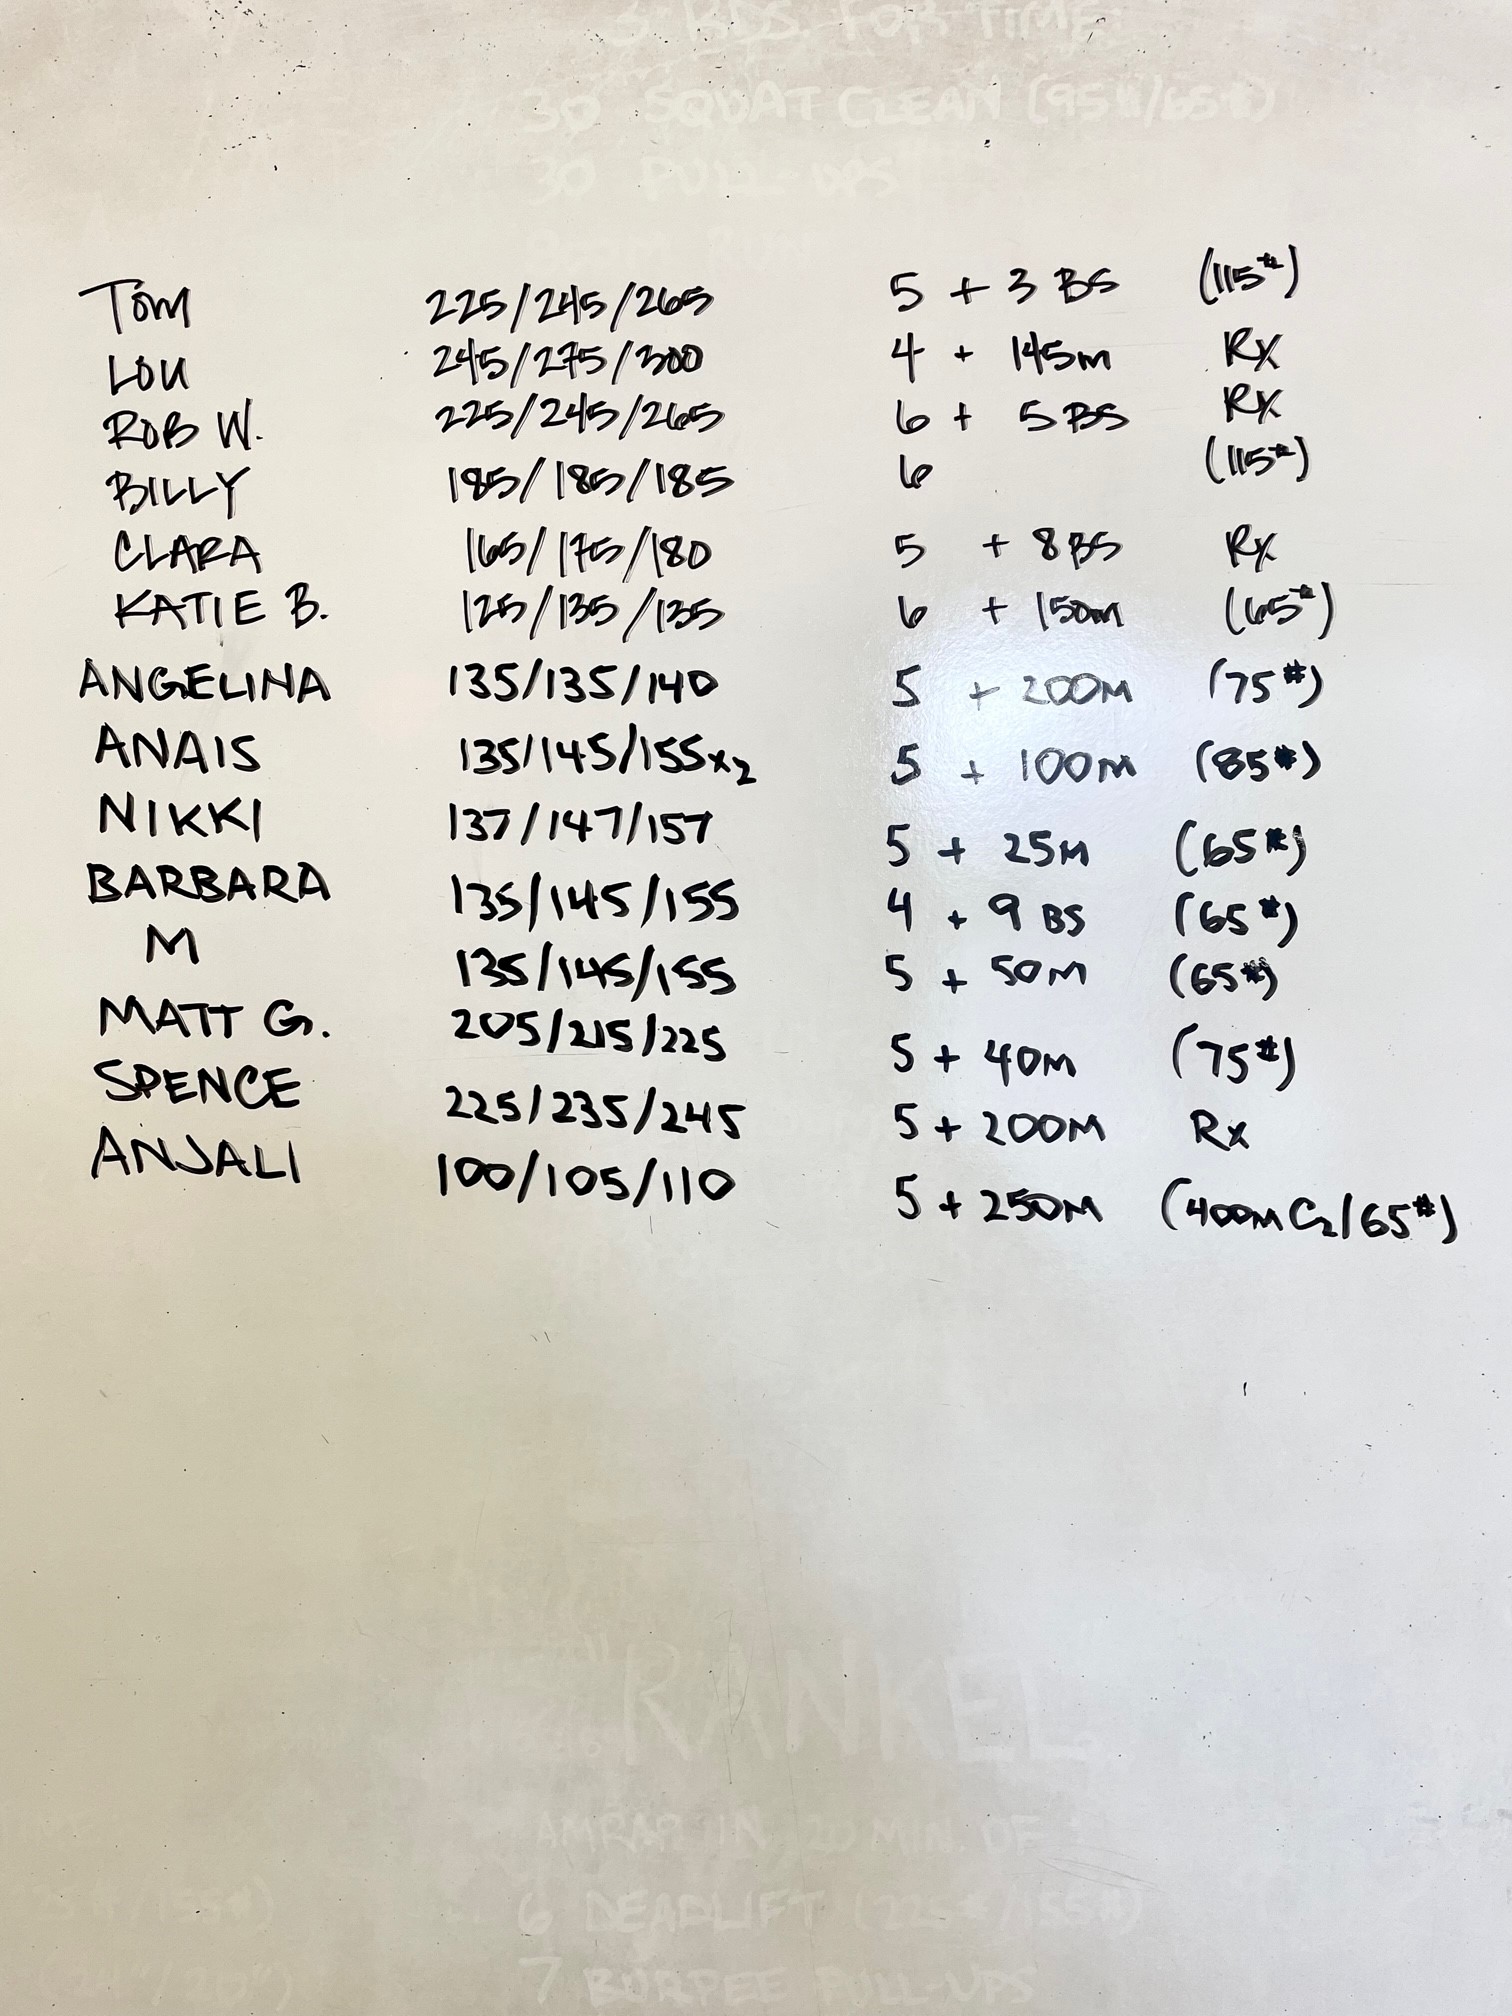 3 RDS. FOR TIME:
30 SQUAT CLEAN (95#/65#)
30 PULL-UPS
TOM 225/245/265 5 + 3 BS (115#)
LOU 245/275/300 4 + 145m Rx
ROB W. 225/245/265 6 + 5 BS Rx
BILLY 185/185/185 6 (115#)
CLARA 165/175/180 5 + 8 BS Rx
KATIE B. 125/135/135 6 + 150m (65#)
ANGELINA 135/135/140 5 + 200M (75#)
ANAIS 135/145/155x2 5 + 100M (85#)
NIKKI 137/147/157 5 + 25M (65#)
BARBARA 135/145/155 4 + 9 BS (65#)
M 135/145/155 5 + 50M (65#)
MATT G. 205/215/225 5 + 40M (75#)
SPENCE 225/235/245 5 + 200M Rx
ANJALI 100/105/110 5 + 250M (400M C2/65#)
"RANKEL
AMRAP IN 20 MIN. OF
6 DEADLIFT (225#/155#)
7 BURPEE PULL-UPS